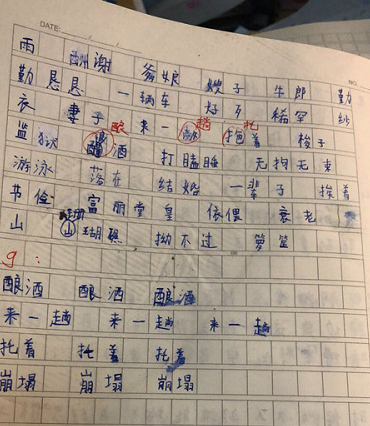 DATE:
雨 酬谢 爹娘 嫂子 牛郎 勤
勤恳恳 一辆车 好歹 稀罕 纱
衣 妻子 来一 趟 拖着 托 梭子
监狱 酿 酒 打瞌睡 无拘无束
游泳 落在 结婚 一辈子 挨着
节俭 富丽堂皇 依偎 衰老
山 珊瑚礁 拗不过 箩筐
9:
酿酒 酿酒 酿酒
来一趟 来一趟 来一趟
托着 托着 托着
崩塌 崩塌 崩塌